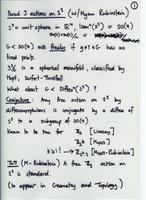 Period 3 actions on S³ (w/ Hyam Rubinstein)
S³ = unit sphere in ℝ⁴, isom⁺(S³) = SO(4)
G < SO(4) acts freely if g≠1 ∈ G has no
fixed pts
S³/G is a spherical manifold, classified by
Hopf, Seifert-Threlfall
What about G < Diffeo(S³)?
Conjecture: Any free action on S³ by
diffeomorphisms is conjugate by a diffeo
of S³ to a subgroup of SO(4)
Known to be true for ℤ₂ [Livesay]
ℤ₄ [Rice]
[Myers-Rubinstein]
Thm (M - Rubinstein) A free ℤ₃ action on
S³ is standard.
(to appear in Geometry and Topology)